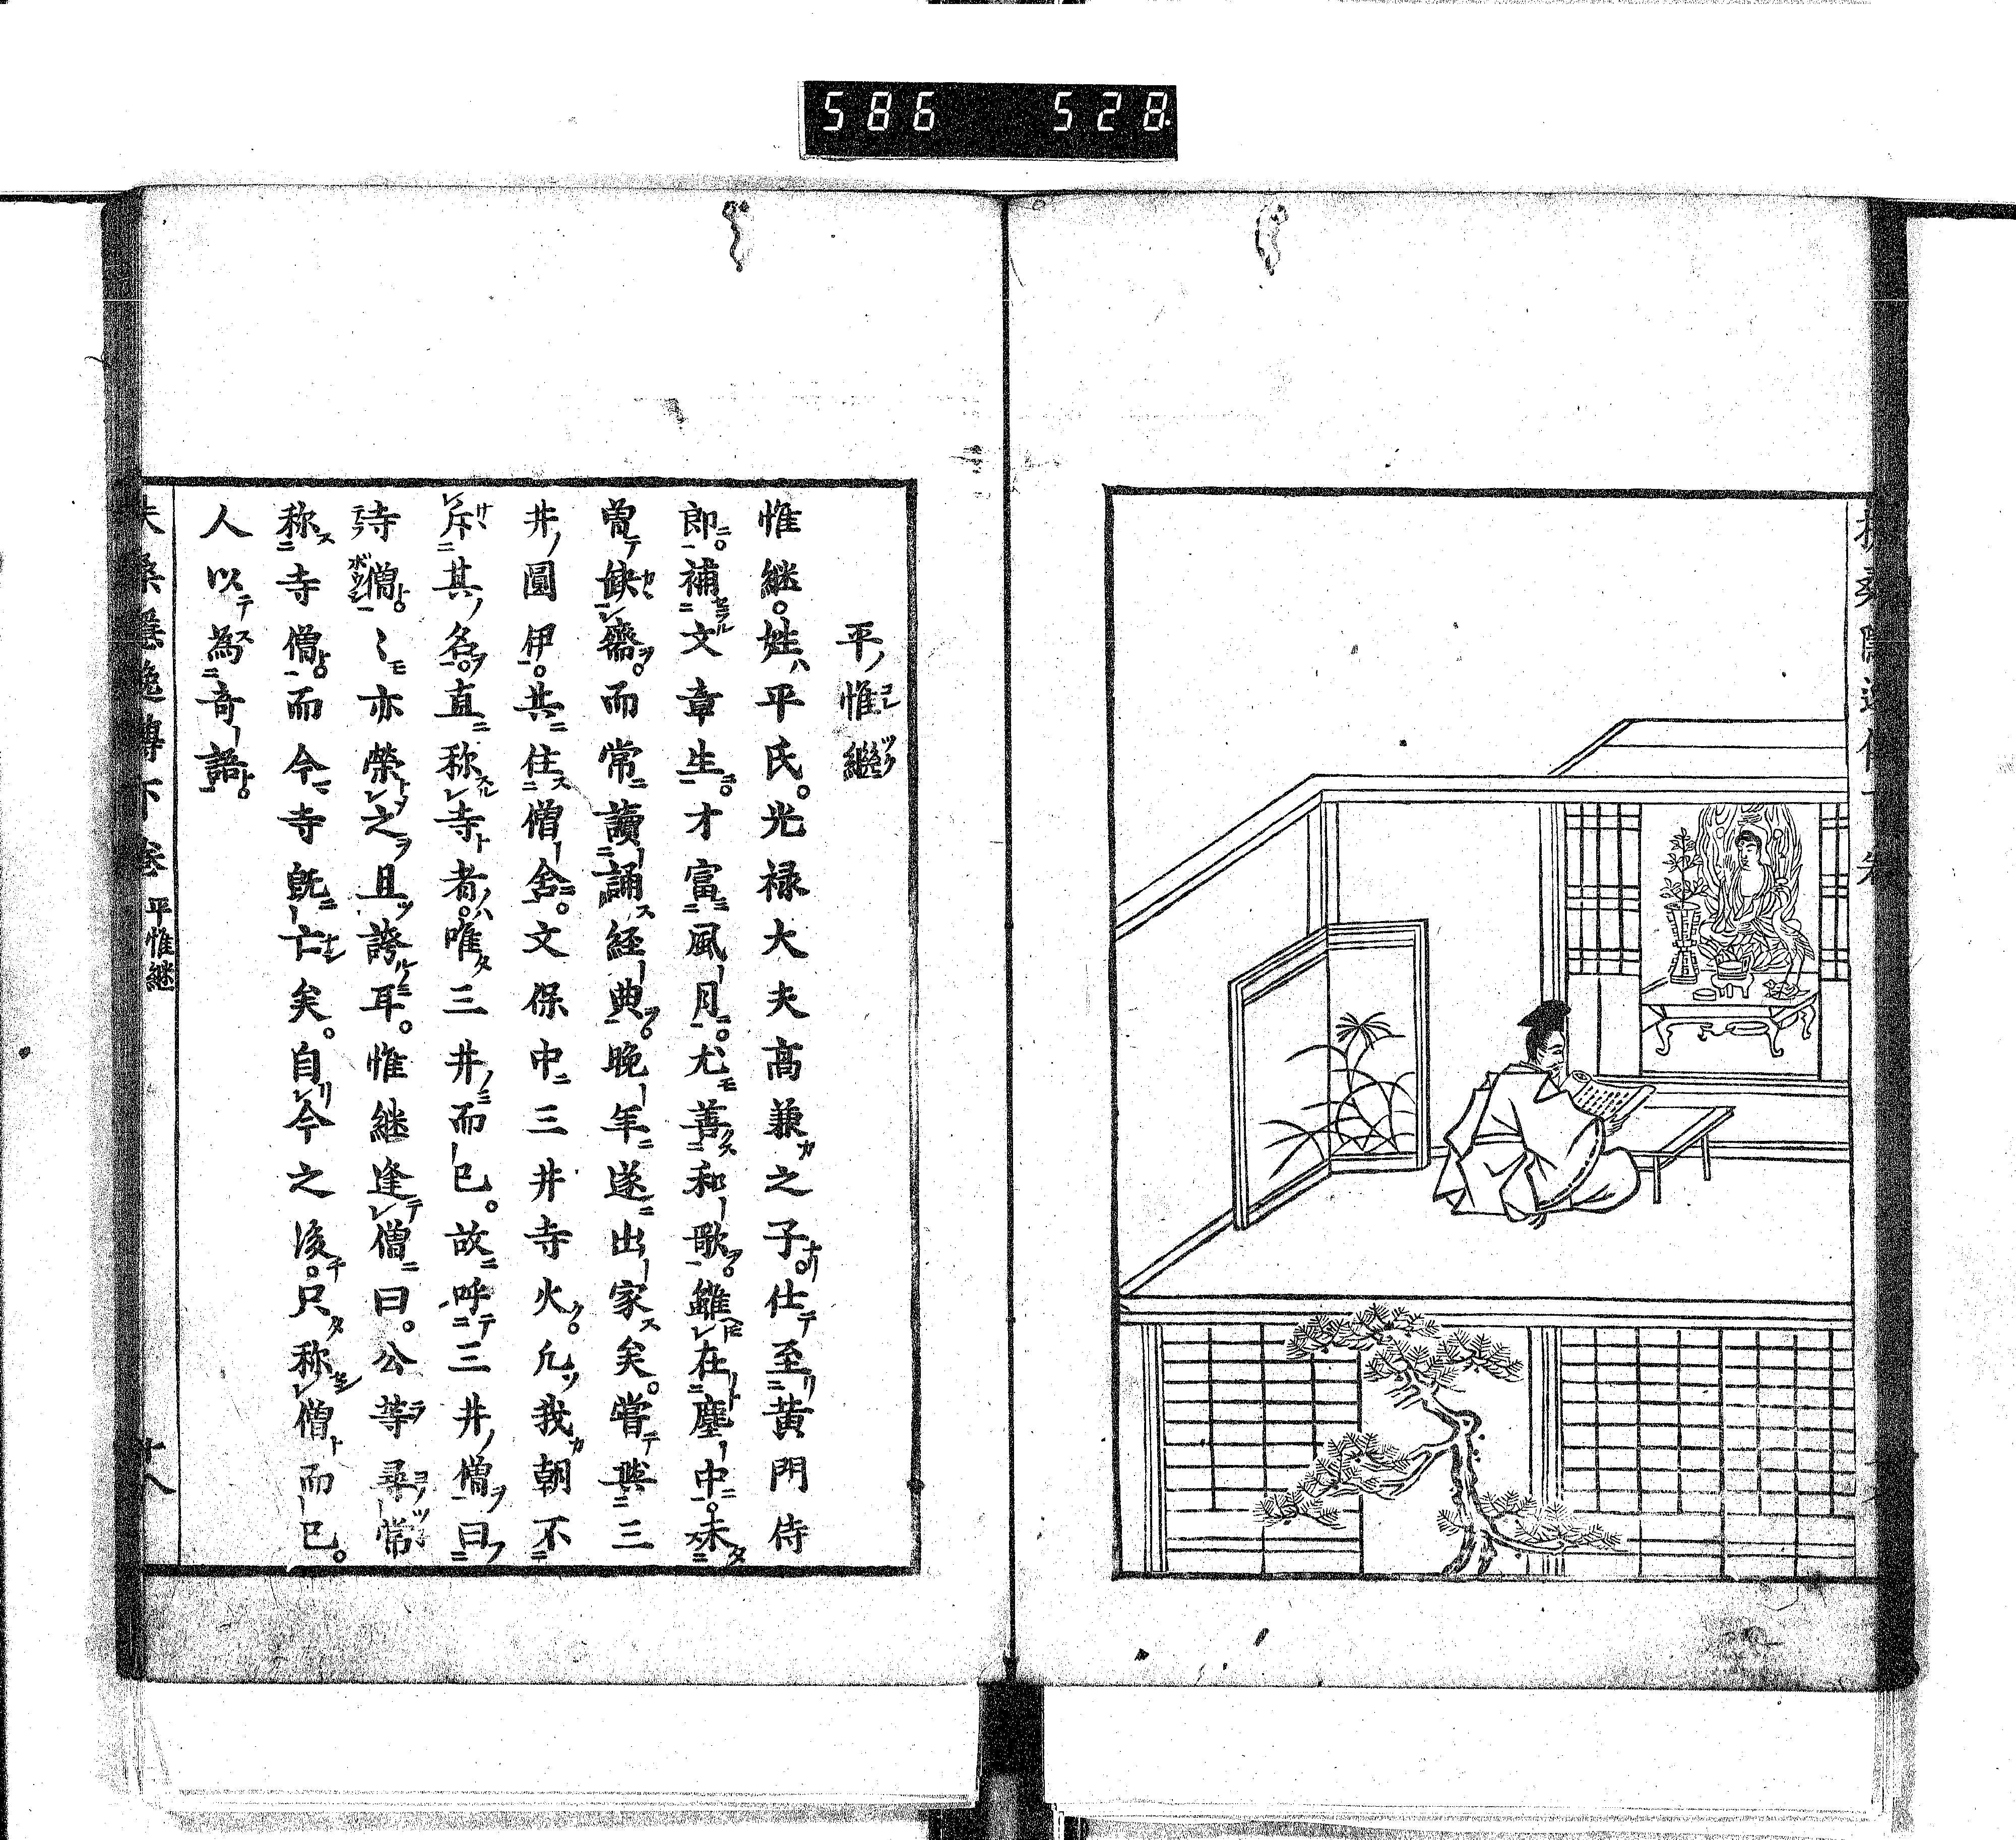 586 528
平惟継
惟継。姓平氏。光禄大夫高兼之子。仕至黄門侍
郎。補文章生。才富風月。尤善和歌。雖在塵中。未
曽缺齋。而常讀誦経典。晩年遂出家矣。嘗與三
井圓伊。共住僧舎。文保中三井寺火。凢我朝不
斥其名。直称寺者。唯三井而已。故呼三井僧曰
寺僧。〻亦榮之且誇耳。惟継逢僧曰。公等尋常
称寺僧。而今寺既亡矣。自今之後。只称僧而已。
人以為奇語。
扶桑隱逸傳下卷 平惟継 十八